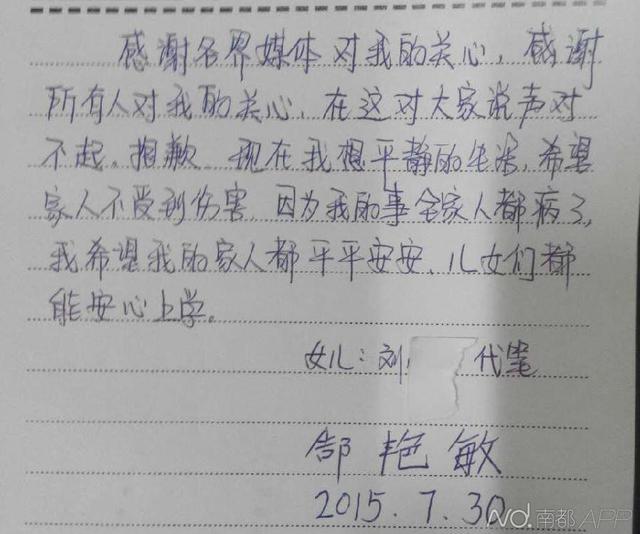 感谢各界媒体对我的关心，感谢
所有人对我的关心、在这对大家说声对
不起。抱歉 现在我想平静的生活，希望
家人不受到伤害，因为我的事全家人都病了，
我希望我的家人都平平安安、儿女们都
能安心上学。
女儿：刘 代笔
郜艳敏
2015.7.30
南都APP